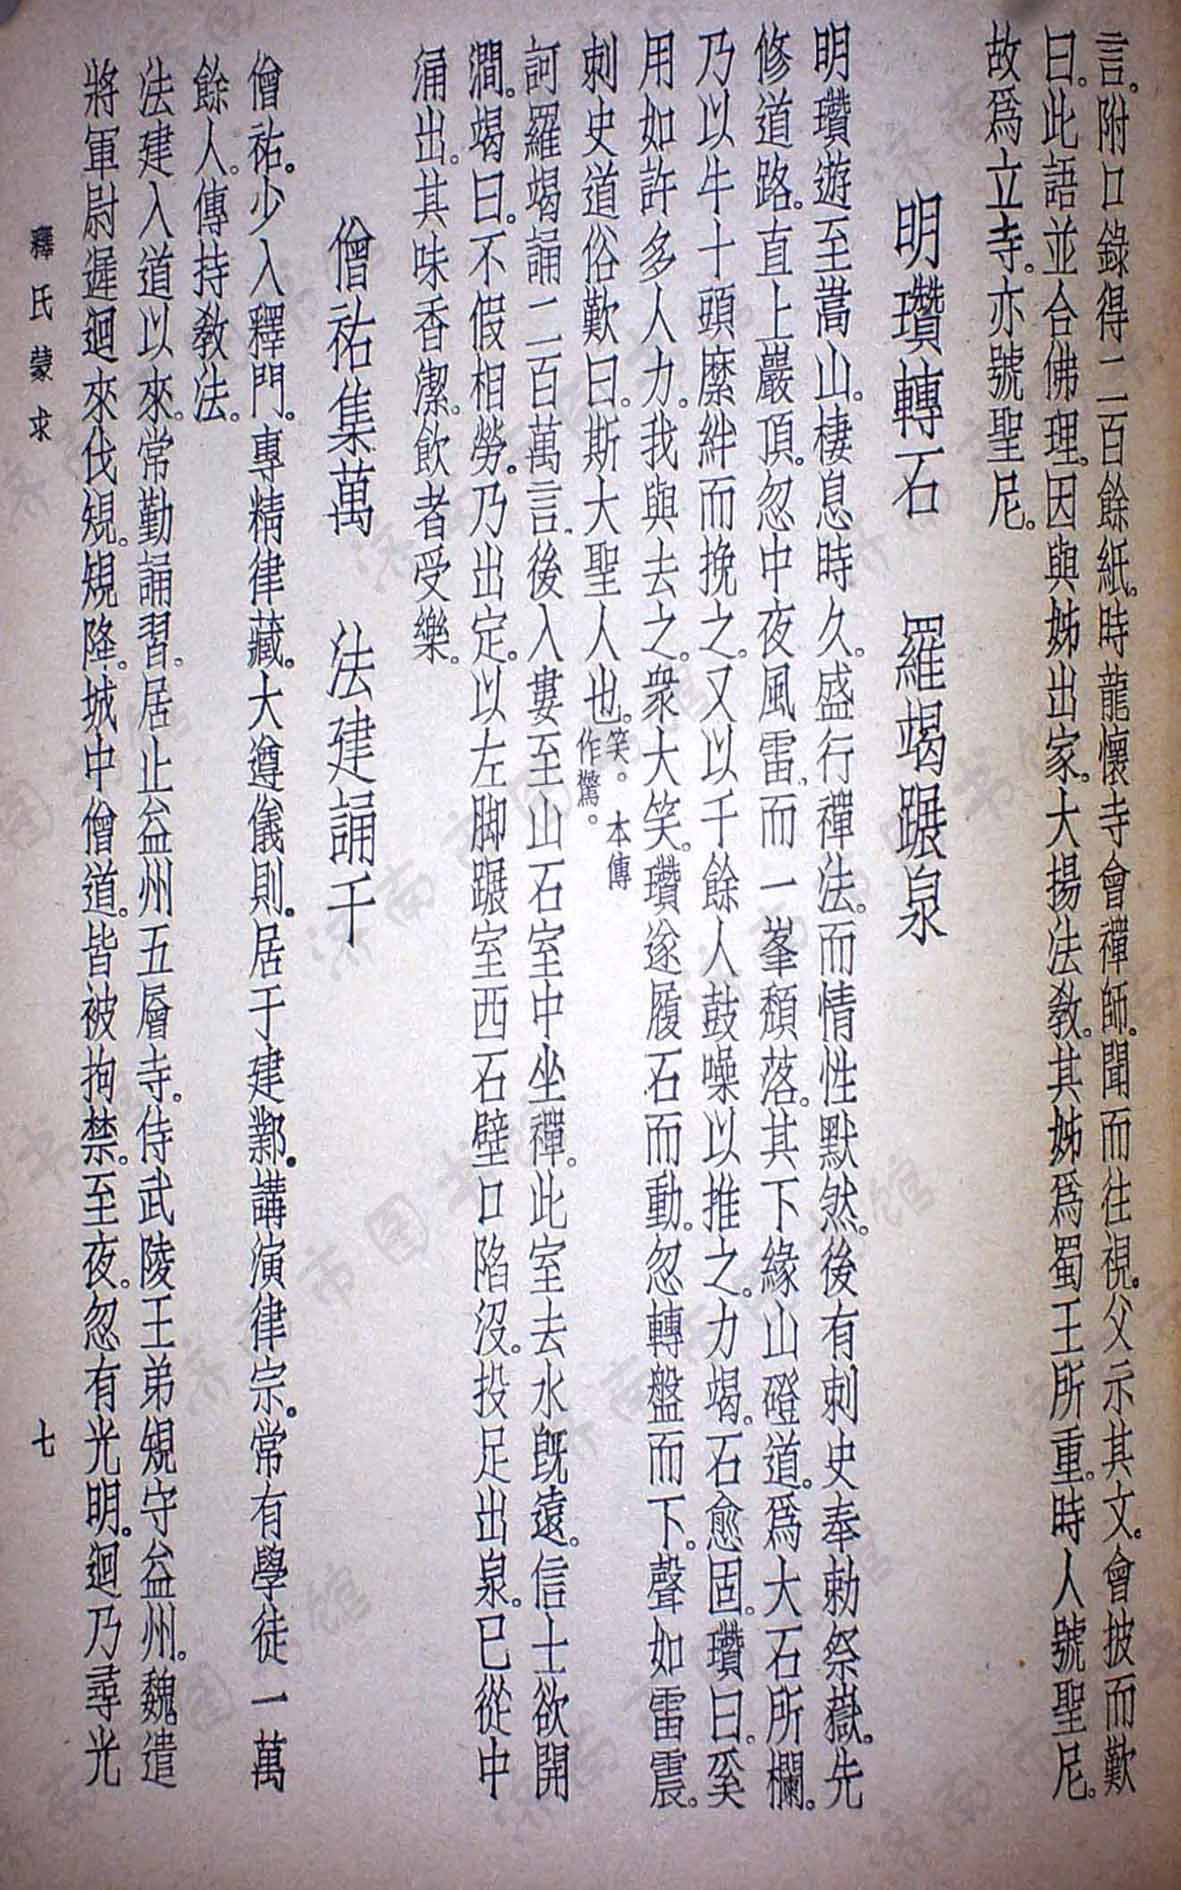 言。附口錄得二百餘紙。時龍懷寺會禪師。聞而往視。父示其文。會披而歎
曰。此語並合佛理。因與姊出家。大揚法教。其姊爲蜀王所重。時人號聖尼。
故爲立寺。亦號聖尼。
明瓚轉石　羅竭蹍泉
明瓚遊至嵩山。棲息時久。盛行禪法。而情性默然。後有刺史奉勅祭嶽。先
修道路。直上嚴頂。忽中夜風雷、而一峯頹落。其下緣山磴道。爲大石所欄。
乃以牛十頭縻絆而挽之。又以千餘人鼓噪以推之。力竭。石愈固。瓚曰。奚
用如許多人力。我與去之。衆大笑。瓚遂履石而動。忽轉盤而下。聲如雷震。
刺史道俗歎曰。斯大聖人也。笑。本傳作驚。
訶羅竭誦二百萬言、後入婁至山石室中坐禪。此室去水既遠。信士欲開
澗。竭曰。不假相勞。乃出定。以左脚蹍室西石壁口陷沒。投足出泉。已從中
涌出。其味香潔。飲者受樂。
僧祐集萬　法建誦千
僧祐。少入釋門。專精律藏。大遵儀則。居于建鄴。講演律宗。常有學徒一萬
餘人。傳持教法。
法建入道以來。常勤誦習。居止益州五層寺。侍武陵王弟䂓守益州。魏遣
將軍尉遲迴來伐䂓。䂓降。城中僧道。皆被拘禁。至夜。忽有光明。迴乃尋光
釋氏蒙求
七
济南市图书馆